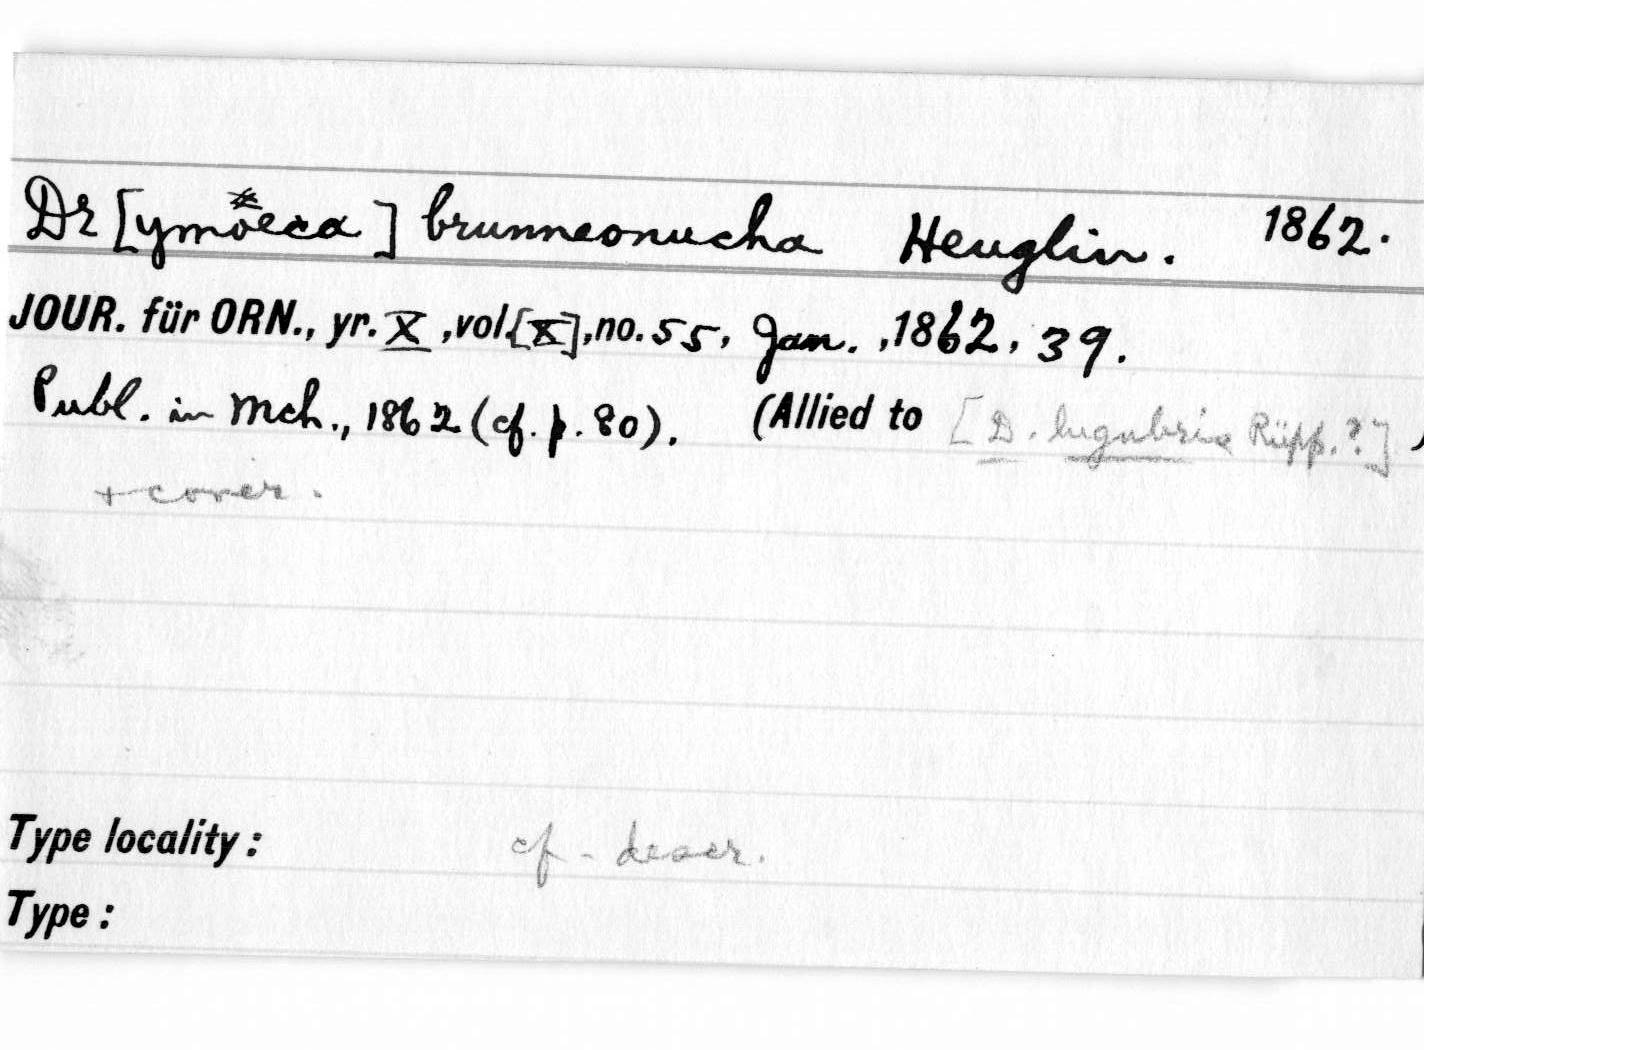 Dr[ymöeca] brunneonucha Heuglin. 1862.
JOUR. für ORN., yr. X, vol. [X], no. 55, Jan., 1862, 39.
Publ. in Mch., 1862 (cf. p. 80). (Allied to [D. lugubris Rüpp.?] )
+ cover.
Type locality: cf. descr.
Type: